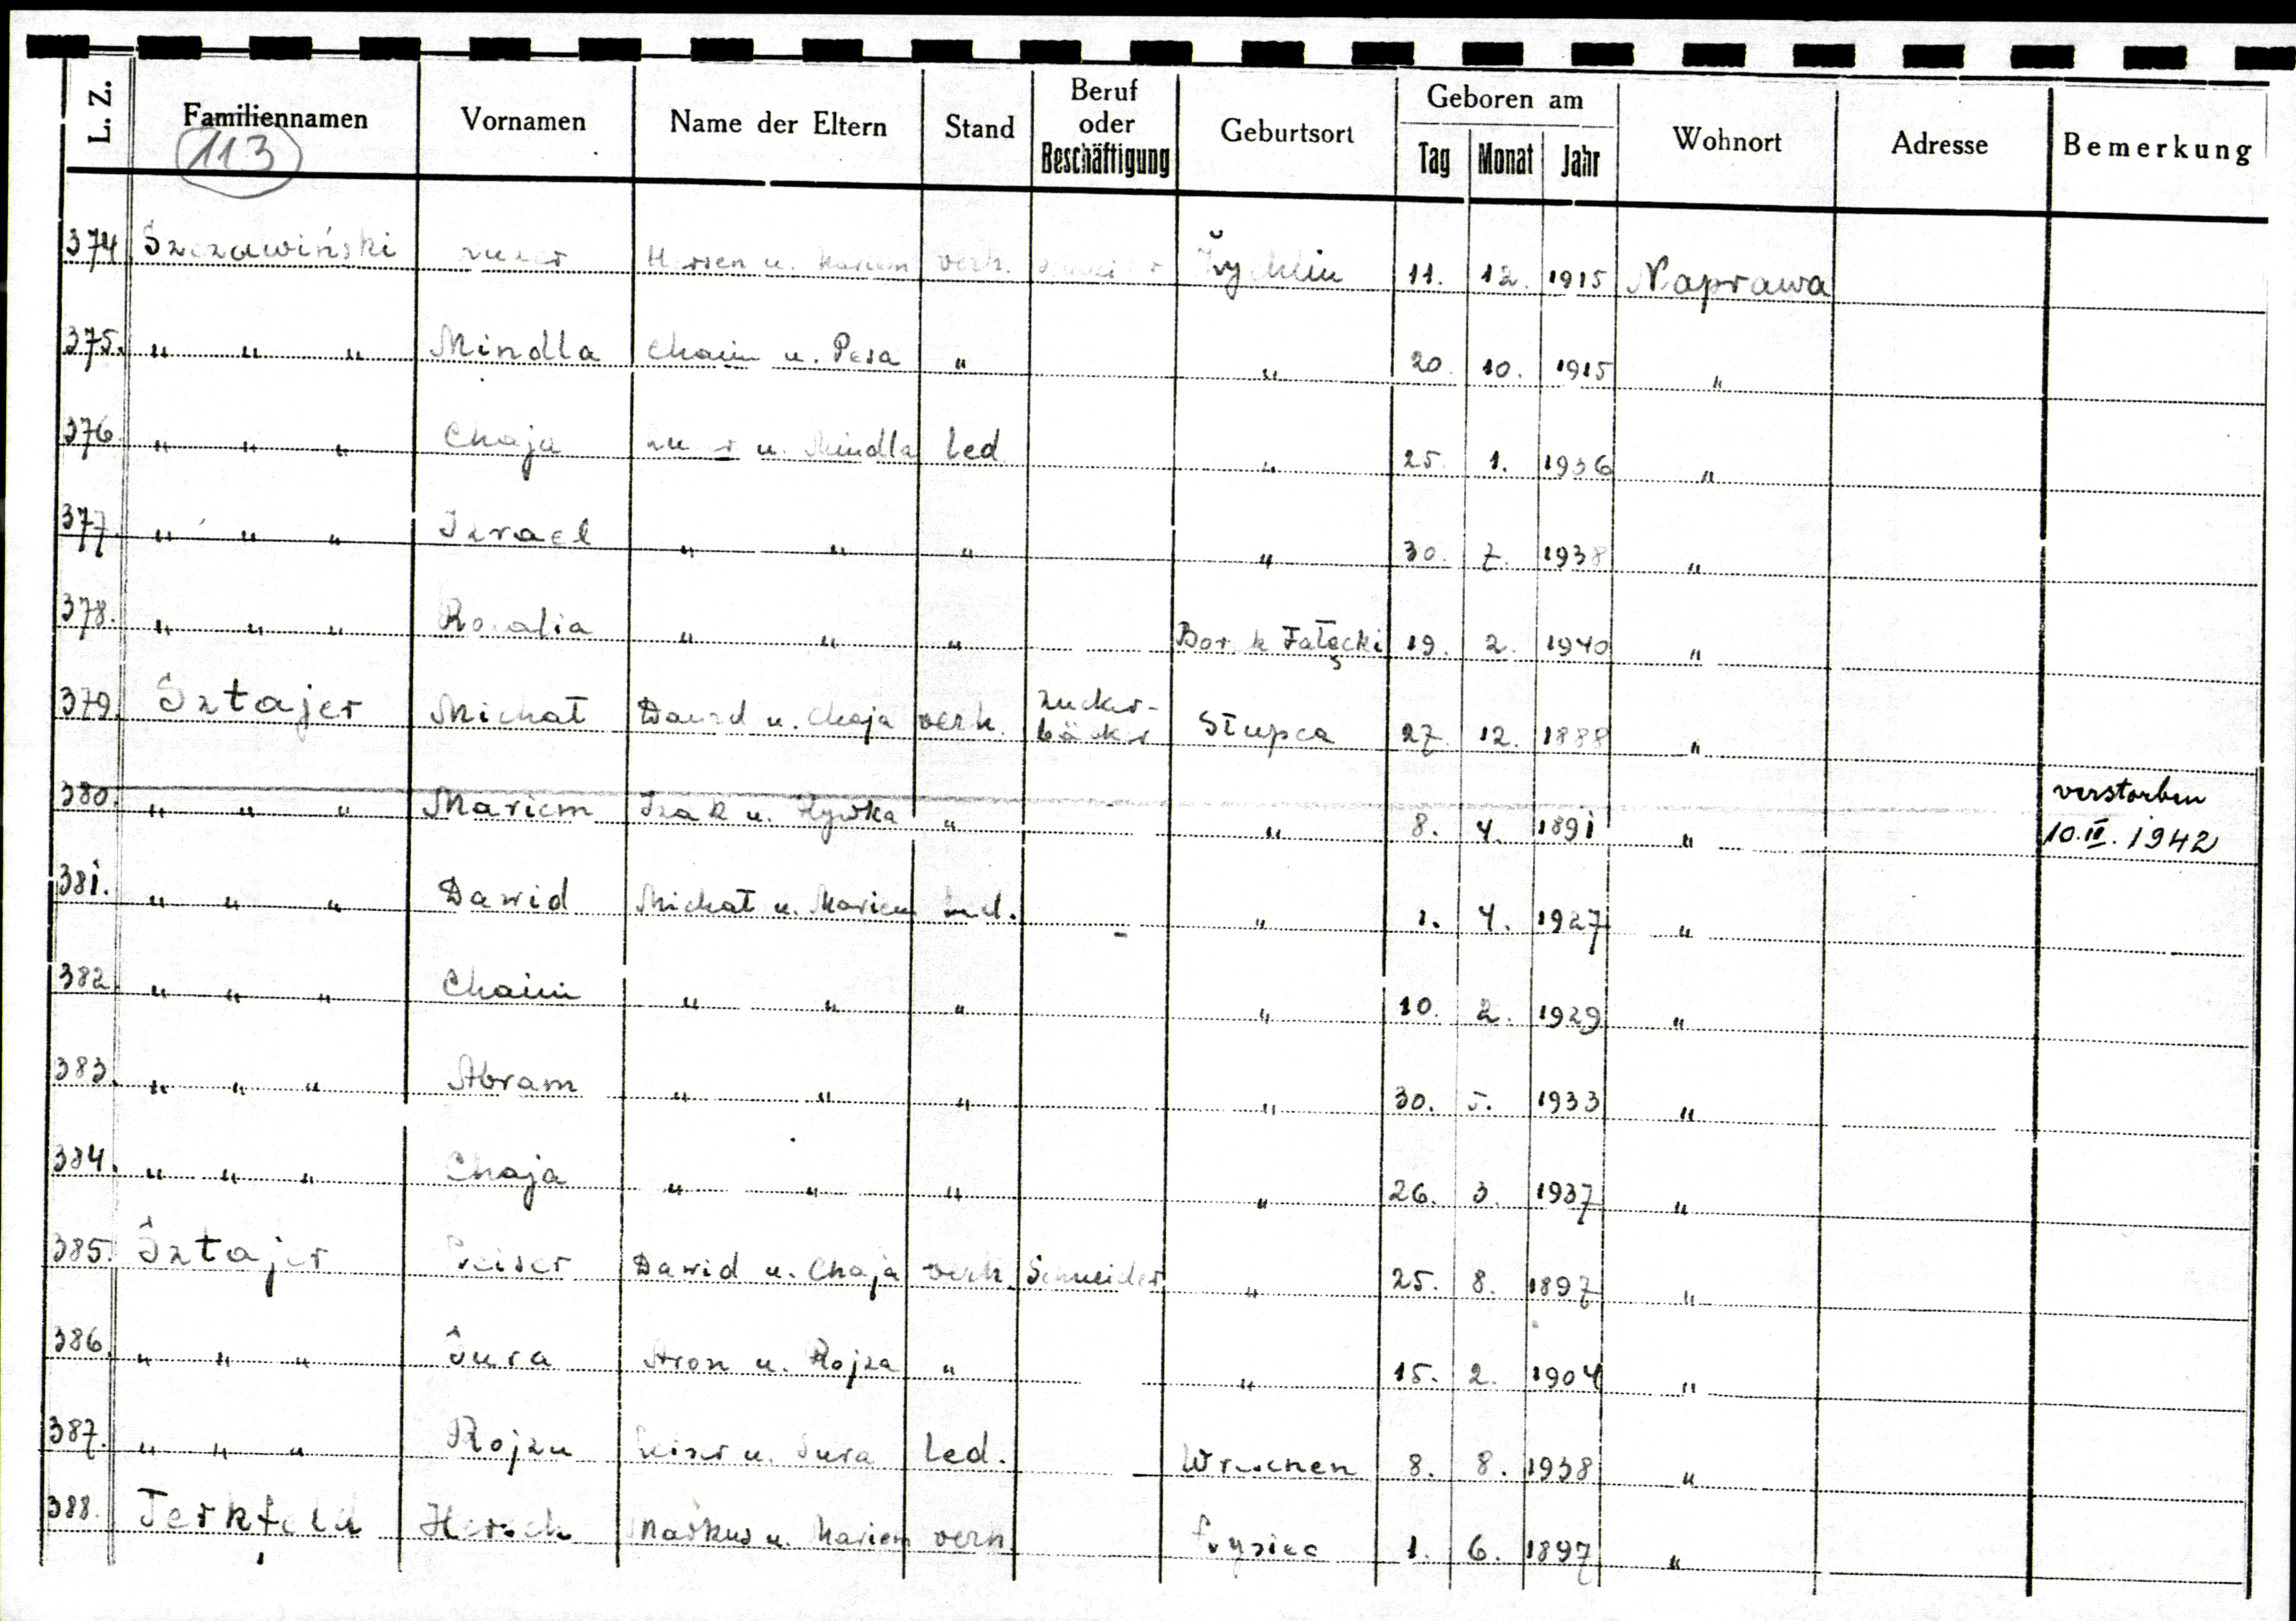 L. Z. Familiennamen Vornamen Name der Eltern Stand Beruf oder Beschäftigung Geburtsort Geboren am Tag Monat Jahr Wohnort Adresse Bemerkung
113
374 Szczawiński Hersen u. Mariem verh. Żychlin 11. 12. 1915 Naprawa
375. " " " Mindla Chaim u. Pesa " " 20. 10. 1915 "
376. " " " Chaja u. Mindla led " 25. 1. 1936 "
377. " " " Izrael " " " " 30. 7. 1938 "
378. " " " Rozalia " " " Borek Fałęcki 19. 2. 1940 "
379. Sztajer Michał Dawid u. Chaja verh. Zucker-bäcker Słupca 27. 12. 1888 "
380. " " " Mariem Izak u. Rywka " " 8. 4. 1891 " verstorben 10.II.1942
381. " " " Dawid Michał u. Mariem led. " 1. 4. 1927 "
382. " " " Chaim " " " " 10. 2. 1929 "
383. " " " Abram " " " " 30. 5. 1933 "
384. " " " Chaja " " " " 26. 3. 1937 "
385. Sztajer Leiser Dawid u. Chaja verh. Schneider " 25. 8. 1897 "
386. " " " Sura Aron u. Rojza " " 15. 2. 1904 "
387. " " " Rojza Leiser u. Sura led. Wreschen 8. 8. 1938 "
388. Terkfeld Hersch Markus u. Mariem verh. 1. 6. 1897 "